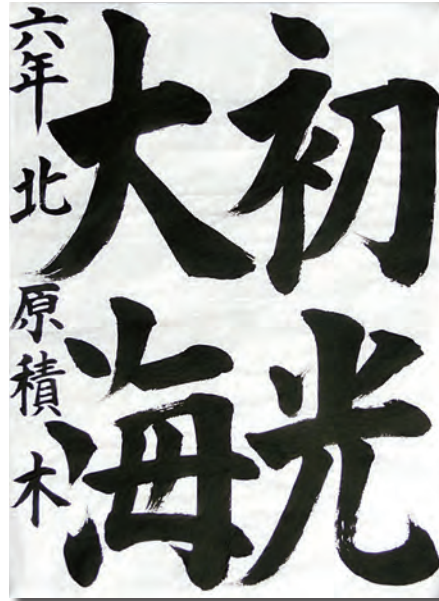 初光
大海
六年 北原積木